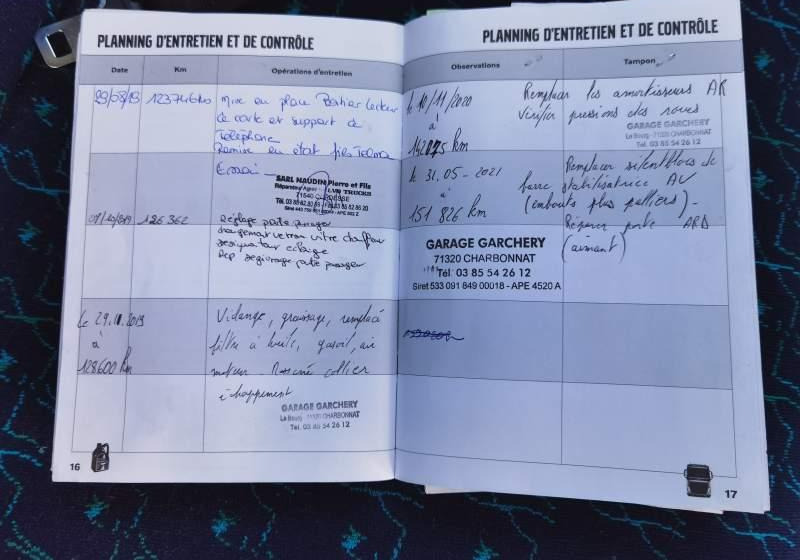 PLANNING D'ENTRETIEN ET DE CONTRÔLE
Date Km Opérations d'entretien
29/03/19 123746km Mise en place Boitier Lecteur
de carte et support de
Telephone
Remise en état fils Telma
Essai
SARL NAUDIN Pierre et Fils
Réparateur Agréé TRUCKS
71540
126 362 Réglage porte passager
vitre chauffeur
eclairage
porte passager
le 29.11.2019 Vidange, graissage, remplacé
à filtre à huile, gasoil, air
128600 km moteur. Resserré collier
échappement
GARAGE GARCHERY
Le Bourg - 71320 CHARBONNAT
Tél. 03 85 54 26 12
16
PLANNING D'ENTRETIEN ET DE CONTRÔLE
Observations Tampon
le 10/11/2020 Remplacer les amortisseurs AR
à Vérifier pressions des roues
142875 km
GARAGE GARCHERY
Le Bourg - 71320 CHARBONNAT
Tél. 03 85 54 26 12
le 31.05-2021 Remplacer silentblocs de
à barre stabilisatrice AV
151 826 km (embouts plus paliers)-
Réparer porte ARD
(aimant)
GARAGE GARCHERY
71320 CHARBONNAT
Tél. 03 85 54 26 12
Siret 533 091 849 00018 - APE 4520 A
17